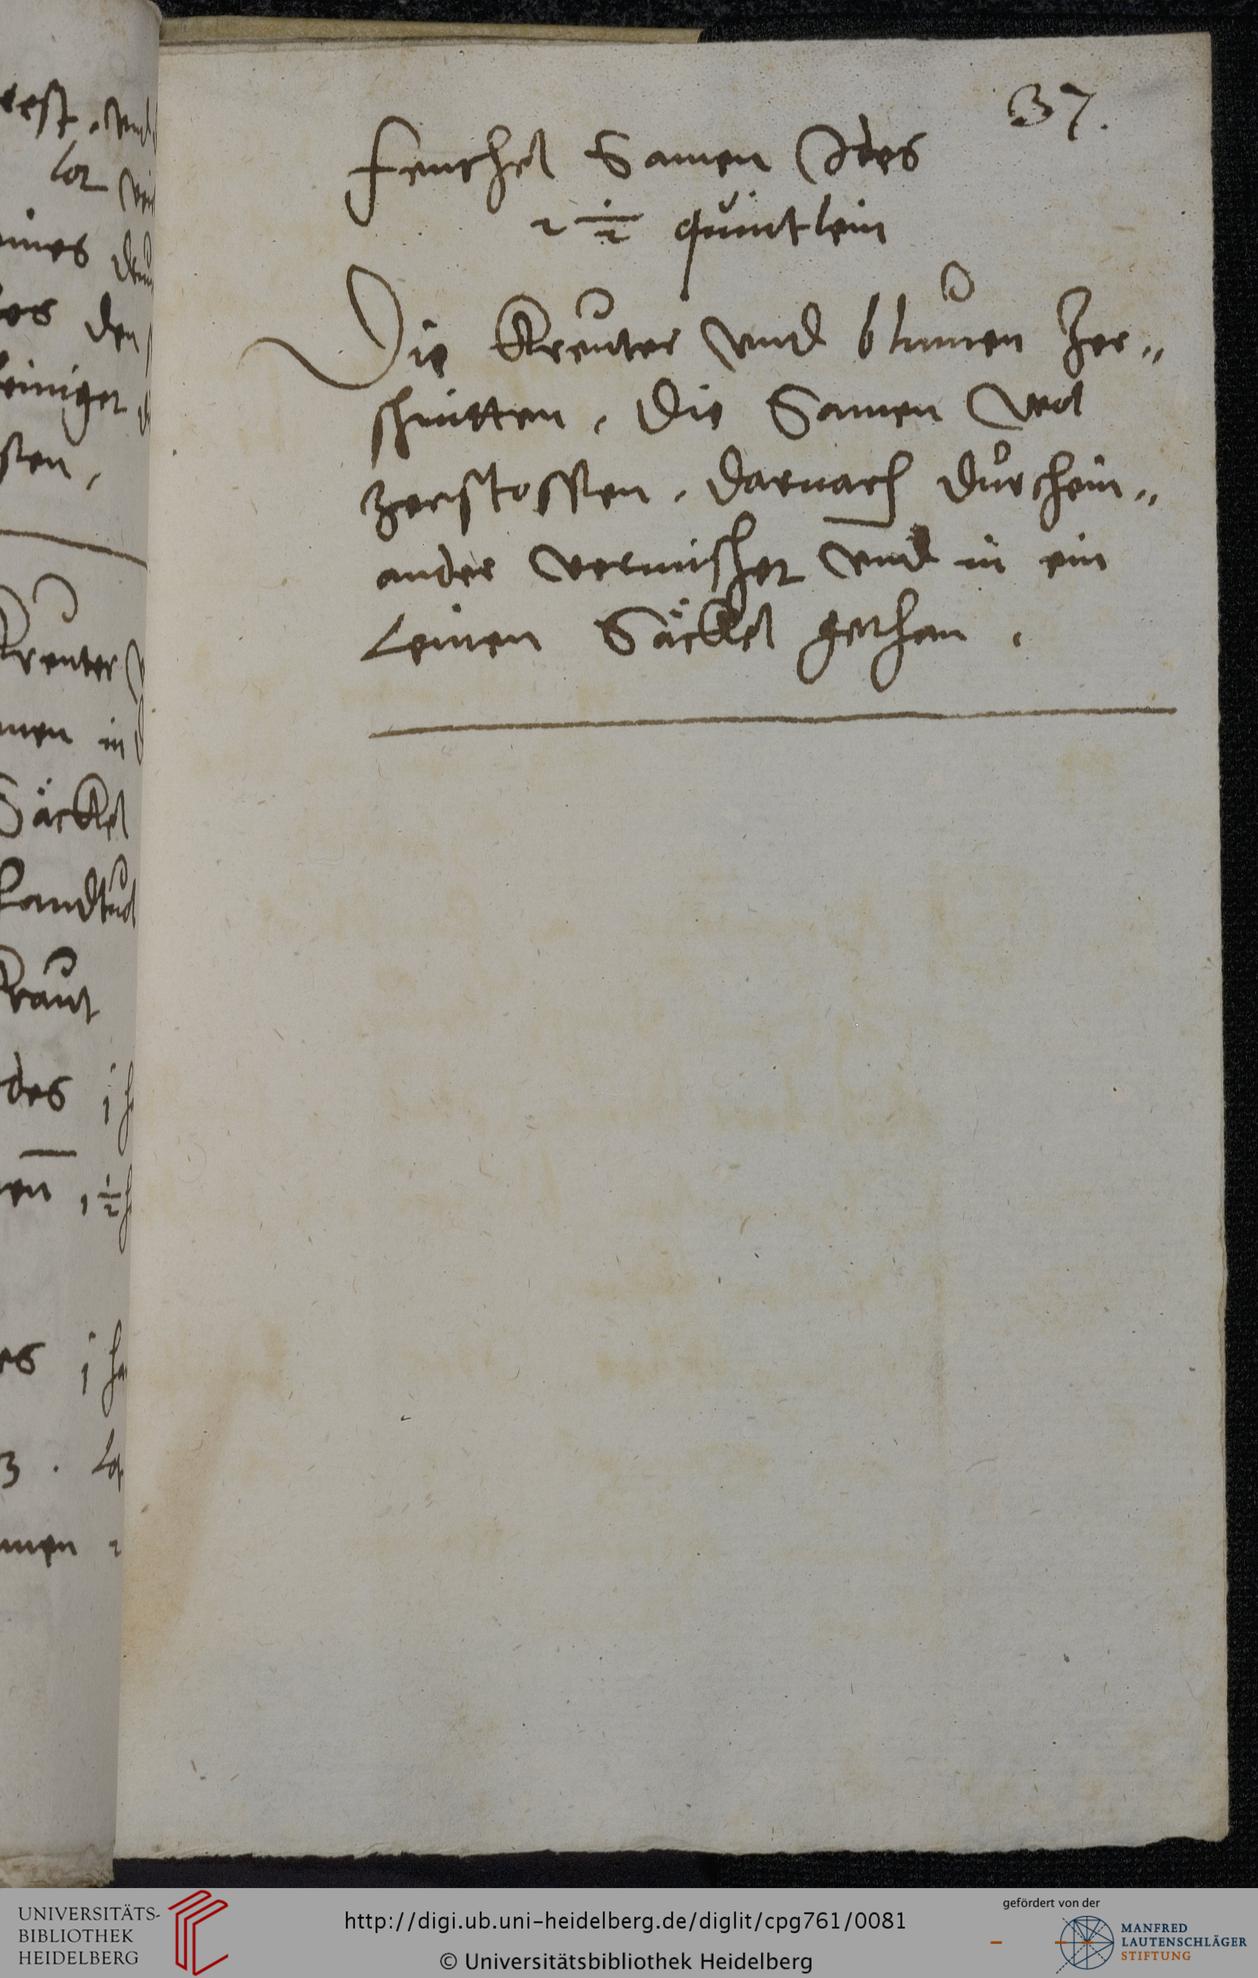 37.
Fenchel Samen Jdes
2 1/2 quintlein
Die Kreuter Vnd blumen Zer„
schnitten, Die Samen Vol
Zerstossen, Darnach Durchein„
ander vermischet Vnd in ein
Leinen Säckel gethan,
Kreuter
men in
Säckel
Kraut
des
3. Lot
UNIVERSITÄTS-
BIBLIOTHEK
HEIDELBERG
http://digi.ub.uni-heidelberg.de/diglit/cpg761/0081
© Universitätsbibliothek Heidelberg
gefördert von der
MANFRED
LAUTENSCHLÄGER
STIFTUNG